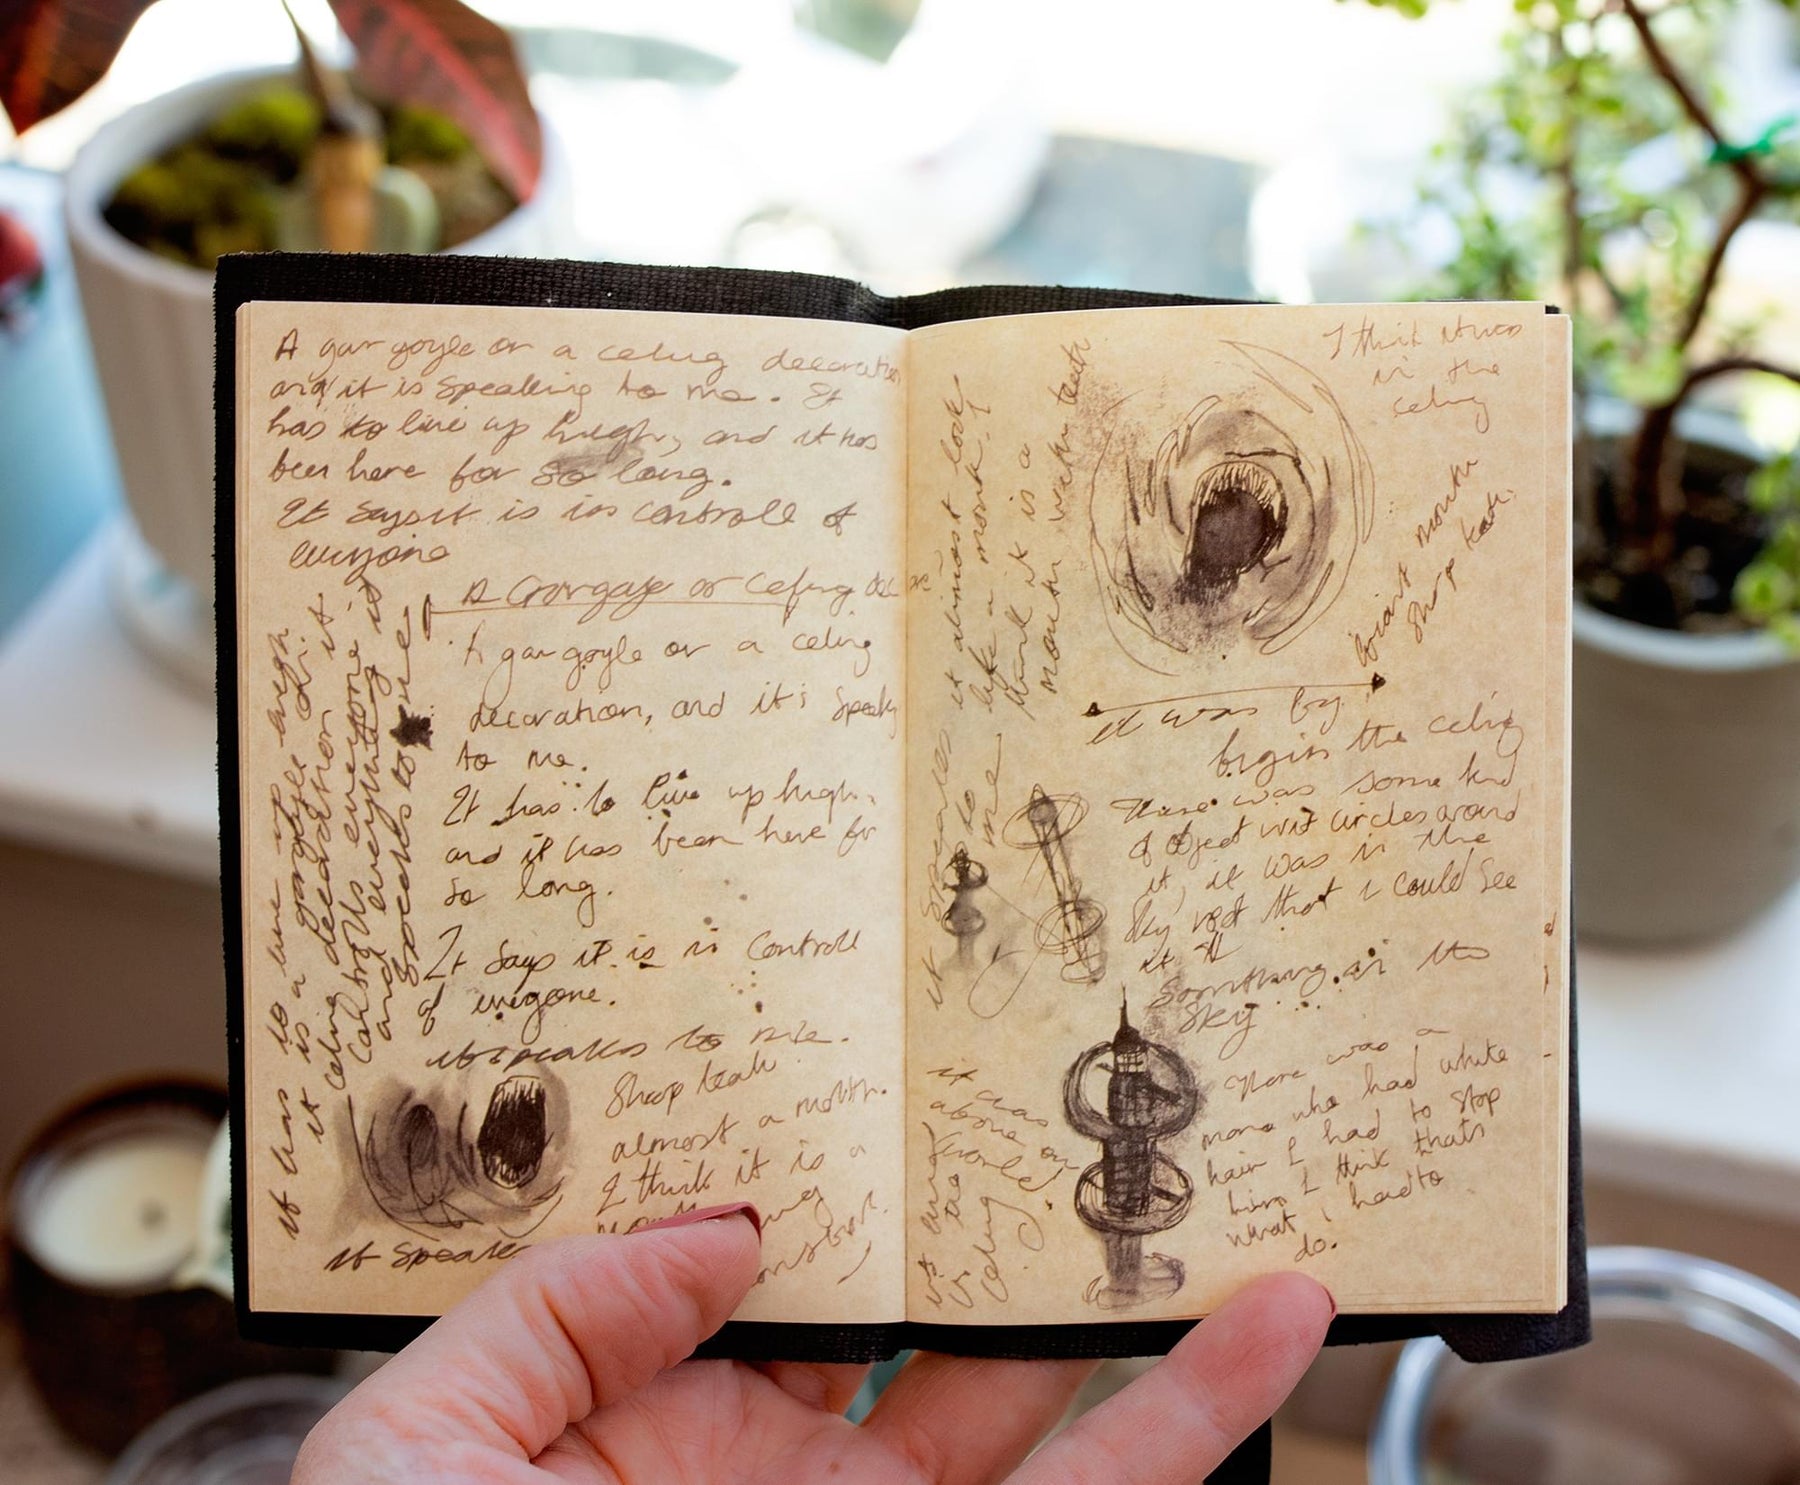 A gargoyle or a celing decoration
and it is speaking to me. It
has to live up high, and it has
been here for so long.
It says it is in controll of
everyone
A Gargoyle or Celing
A gargoyle or a celing
decoration, and it is speaking
to me.
It has to live up high,
and it has been here for
so long.
It says it is in Controll
of everyone.
it speaks to me.
Sharp teath
almost a mouth.
I think it is a
It speaks
it has to live up high
it is a gargoyle or
celing decoration it
controlls everyone
and everything it
speaks to me
I think it was
in the
celing
it almost looks
like a mouth. I
think it is a
mouth with teeth
Giant mouth
Sharp teath.
it was by
begin the celing
There was some kind
of object wit circles around
it, it was in the
sky not that i could see
it
Something in the
sky...
it speaks
to
me
it was
above our
world.
it lived
in the
Celing
There was a
mana who had white
hair I had to stop
him I think thats
what i had to
do.